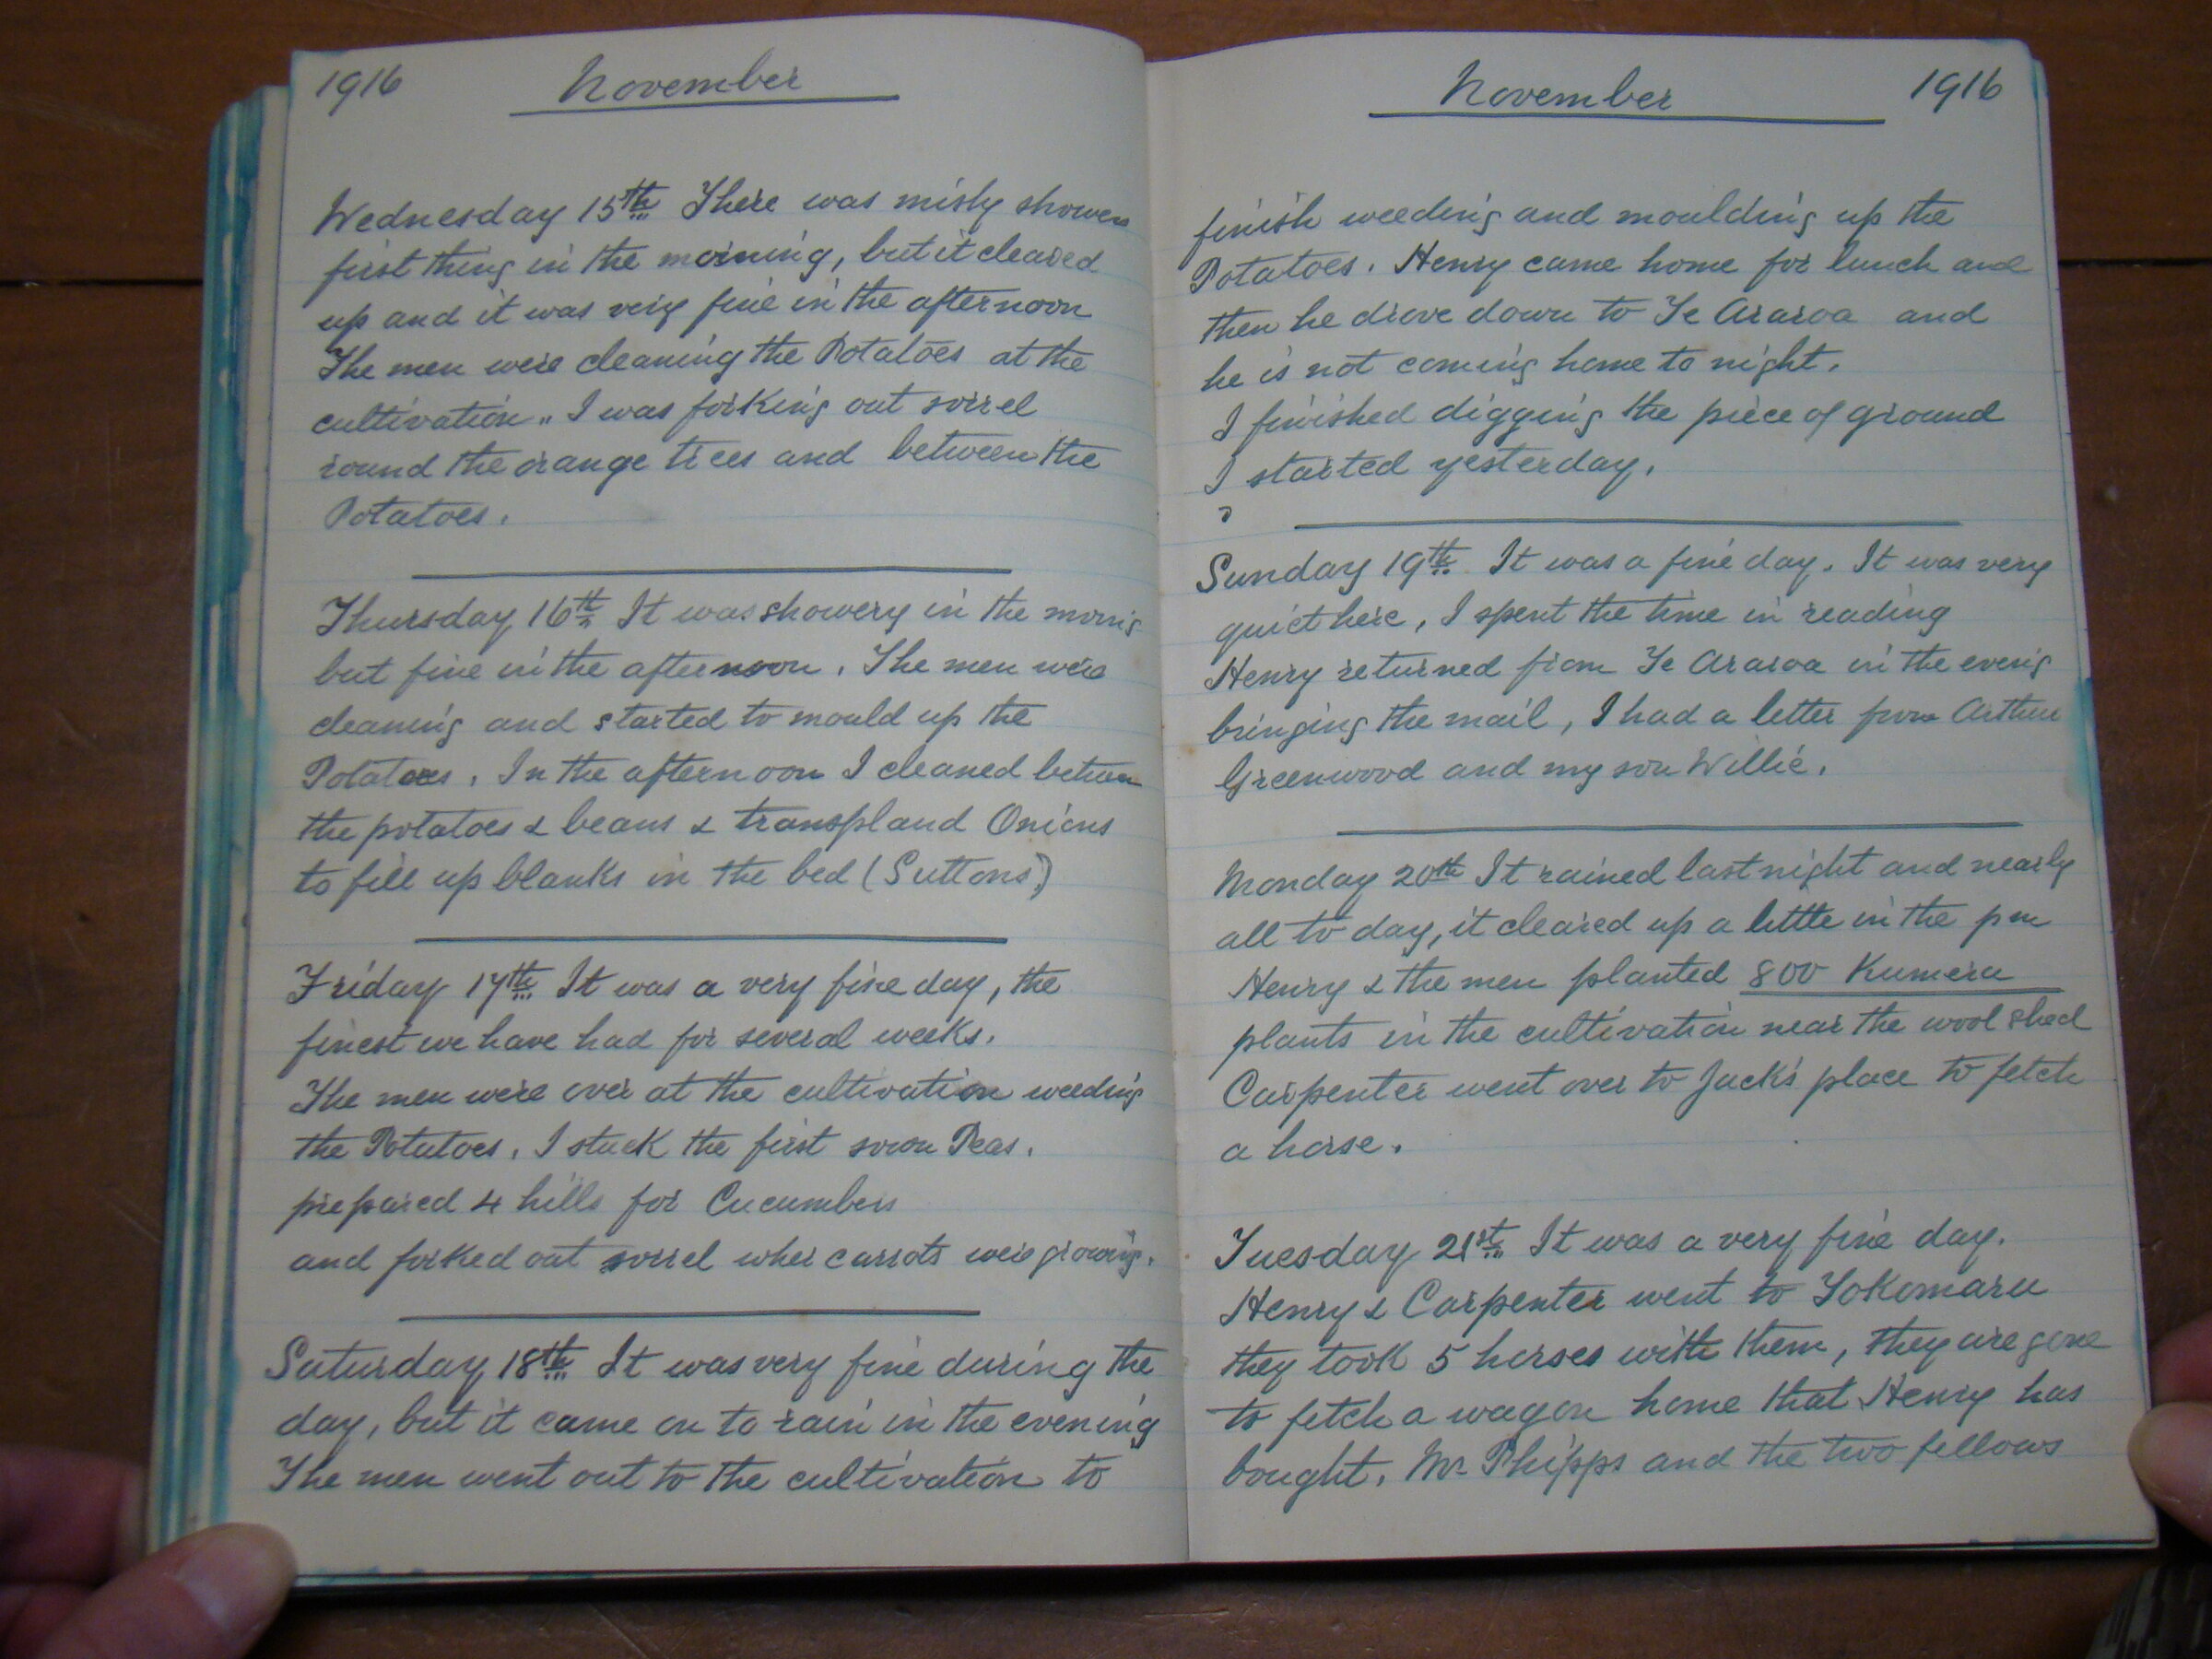 1916 November
Wednesday 15th There was misty showers
first thing in the morning, but it cleared
up and it was very fine in the afternoon
The men were cleaning the Potatoes at the
cultivation. I was forking out sorrel
round the orange trees and between the
Potatoes.
Thursday 16th It was showery in the morning
but fine in the afternoon. The men were
cleaning and started to mould up the
Potatoes. In the afternoon I cleaned between
the potatoes & beans & transpland Onions
to fill up blanks in the bed (Suttons)
Friday 17th It was a very fine day, the
finest we have had for several weeks.
The men were over at the cultivation weeding
the Potatoes. I stuck the first sown Peas.
prepared 4 hills for Cucumbers
and forked out sorrel wher carrots were growing.
Saturday 18th It was very fine during the
day, but it came on to rain in the evening
The men went out to the cultivation to
November 1916
finish weeding and moulding up the
Potatoes. Henry came home for lunch and
then he drove down to Te Araroa and
he is not coming home to night.
I finished digging the piece of ground
I started yesterday.
Sunday 19th It was a fine day. It was very
quiet here, I spent the time in reading
Henry returned from Te Araroa in the evening
bringing the mail, I had a letter from Arthur
Greenwood and my son Willie.
Monday 20th It rained last night and nearly
all to day, it cleared up a little in the pm
Henry & the men planted 800 Kumera
plants in the cultivation near the wool shed
Carpenter went over to Jack's place to fetch
a horse.
Tuesday 21st It was a very fine day.
Henry & Carpenter went to Tokomaru
they took 5 horses with them, they are gone
to fetch a wagon home that Henry has
bought. Mr Phipps and the two fellows